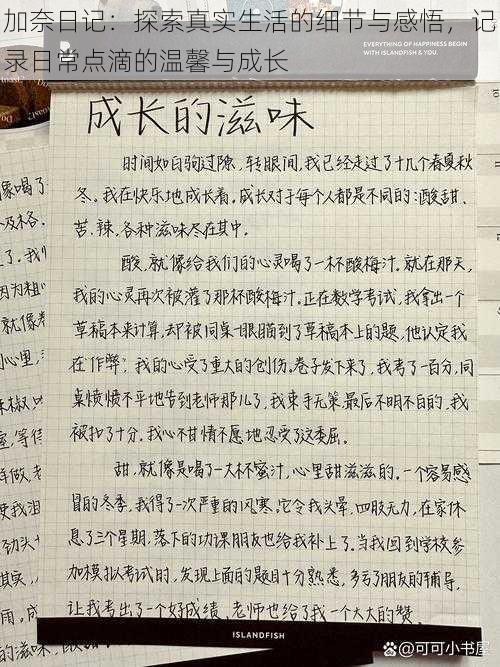 加奈日记：探索真实生活的细节与感悟，记
录日常点滴的温馨与成长
EVERYTHING OF HAPPINESS BEGIN
WITH ISLANDFISH & YOU.
成长的滋味
时间如白驹过隙，转眼间，我已经走过了十几个春夏秋
冬。我在快乐地成长着。成长对于每个人都是不同的：酸、甜、
苦、辣，各种滋味尽在其中。
酸，就像给我们的心灵喝了一杯酸梅汁。就在那天，
我的心灵再次被灌了那杯酸梅汁。正在数学考试，我拿出一个
草稿本来计算，却被同桌一眼瞄到了草稿本上的题，他认定我
在“作弊”，我的心受了重大的创伤。卷子发下来了，我考了一百分，同
桌愤愤不平地告到老师那儿了，我束手无策，最后不明不白的，我
被扣了十分。我心不甘情不愿地忍受了这委屈。
甜，就像是喝了一大杯蜜汁，心里甜滋滋的。一个容易感
冒的冬季，我得了一次严重的风寒。它令我头晕，四肢无力，在家休
息了三个星期，落下的功课朋友也给我补上了。当我回到学校参
加模拟考试的，发现上面的题目十分熟悉，多亏了朋友的辅导，
让我考出了一个好成绩，老师也给了我一个大大的赞。
ISLANDFISH
可可小书屋